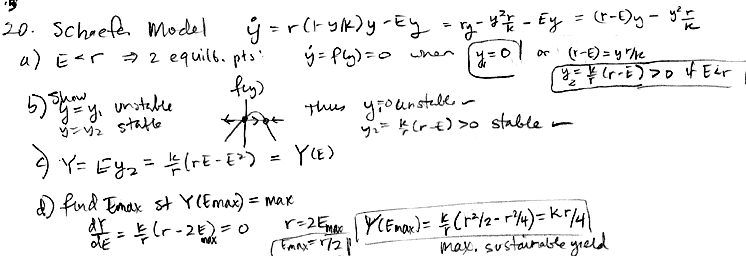 20. Schaefer Model ẏ = r(1-y/k)y - Ey = ry - y²r/k - Ey = (r-E)y - y² r/k
a) E<r ⇒ 2 equilb. pts: ẏ = f(y) = 0 when y₁=0 or (r-E) = yr/k
y₂ = k/r (r-E) > 0 if E<r
b) Show y=y₁ unstable f(y) thus y₁=0 unstable
y=y₂ stable y₂ = k/r (r-E) > 0 stable
c) Y = Ey₂ = k/r (rE-E²) = Y(E)
d) find Emax st Y(Emax) = max
dY/dE = k/r (r-2Emax) = 0 r=2Emax Y(Emax) = k/r (r²/2 - r²/4) = kr/4
Emax = r/2 max. sustainable yield